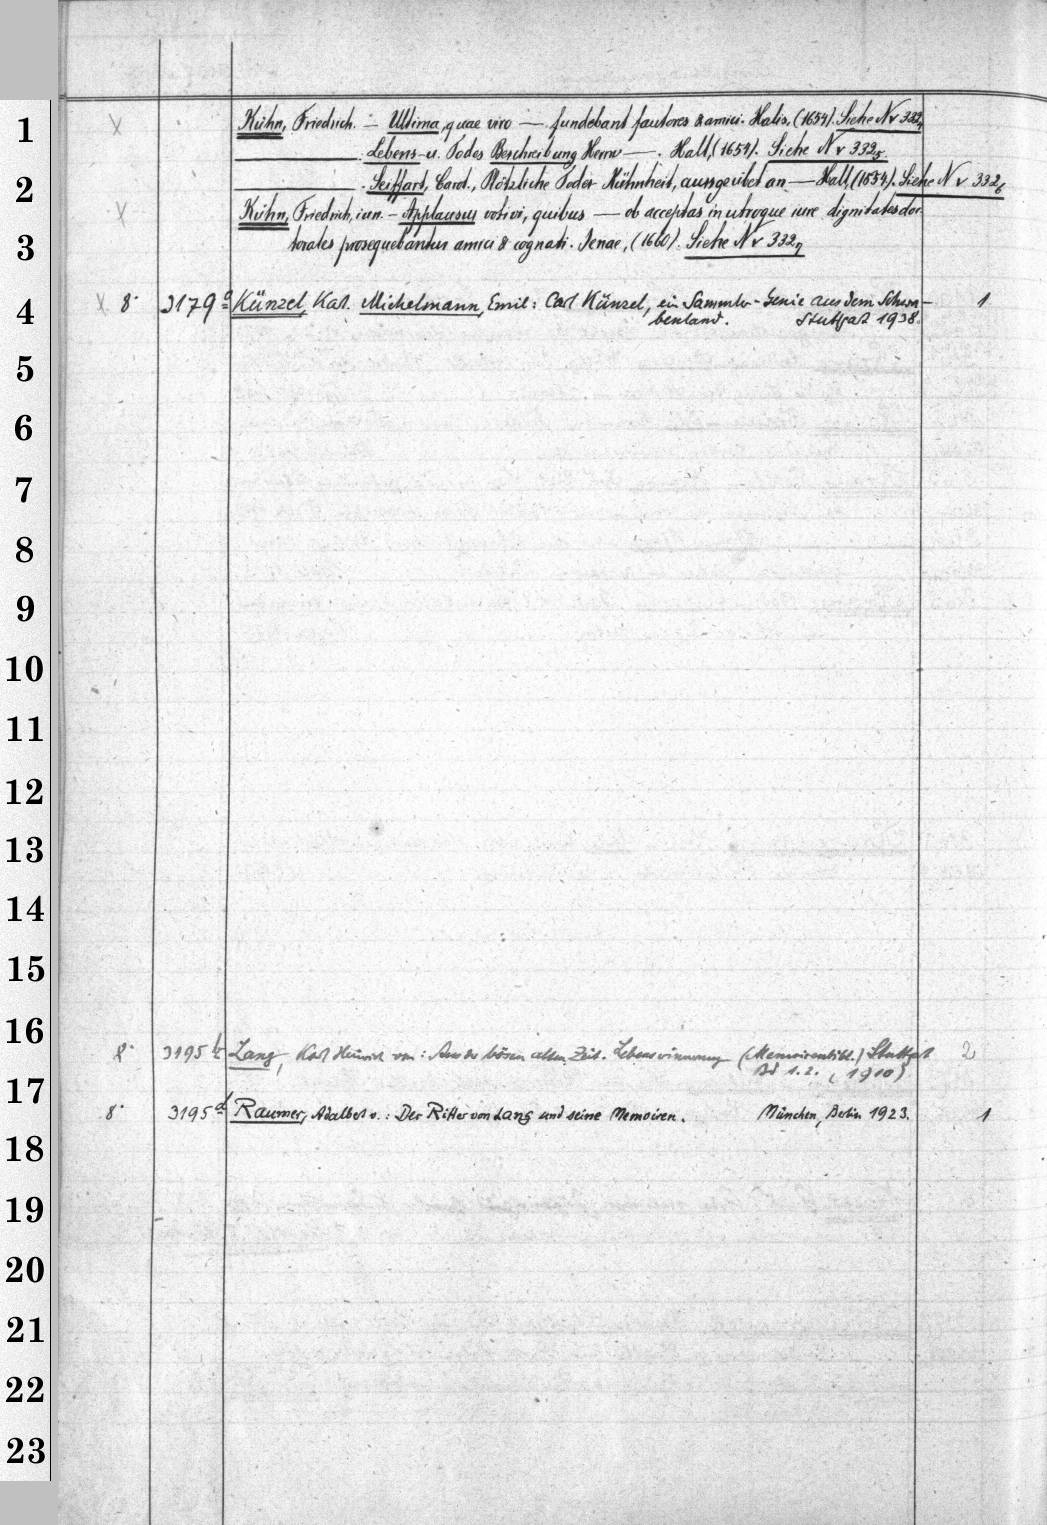 1
2
3
4
5
6
7
8
9
10
11
12
13
14
15
16
17
18
19
20
21
22
23
X Kühn, Friedrich. — Ultima, quae viro — fundebant fautores & amici. Halis, (1654). Siehe Nr 332,
. Lebens- u. Todes Beschreibung Herrn — . Hall, (1654). Siehe Nr 3325.
. Seiffart, Carol., Plötzliche Todes Kühnheit, aussgeübet an — Hall, (1654). Siehe Nr 3326
X Kühn, Friedrich, iun. — Applausus votivi, quibus — ob acceptas in utroque iure dignitates doc-
torales prosequebantur amici & cognati. Jenae, (1660). Siehe Nr 3327
X 8° 3179a Künzel, Karl. Michelmann, Emil: Carl Künzel, ein Sammler-Genie aus dem Schwa- 1
benland. Stuttgart 1938.
8° 3195b Lang, Karl Heinrich von: Aus der bösen alten Zeit. Lebenserinnerung (Memoirenbibl.) Stuttgart 2
Bd 1. 2. (1910)
8° 3195d Raumer, Adalbert v.: Der Ritter von Lang und seine Memoiren. München, Berlin 1923. 1